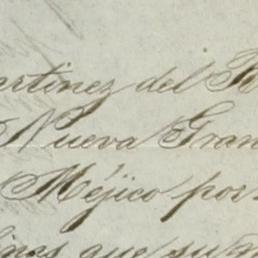 artinez del R
Nueva Gran
Méjico por
inas que su